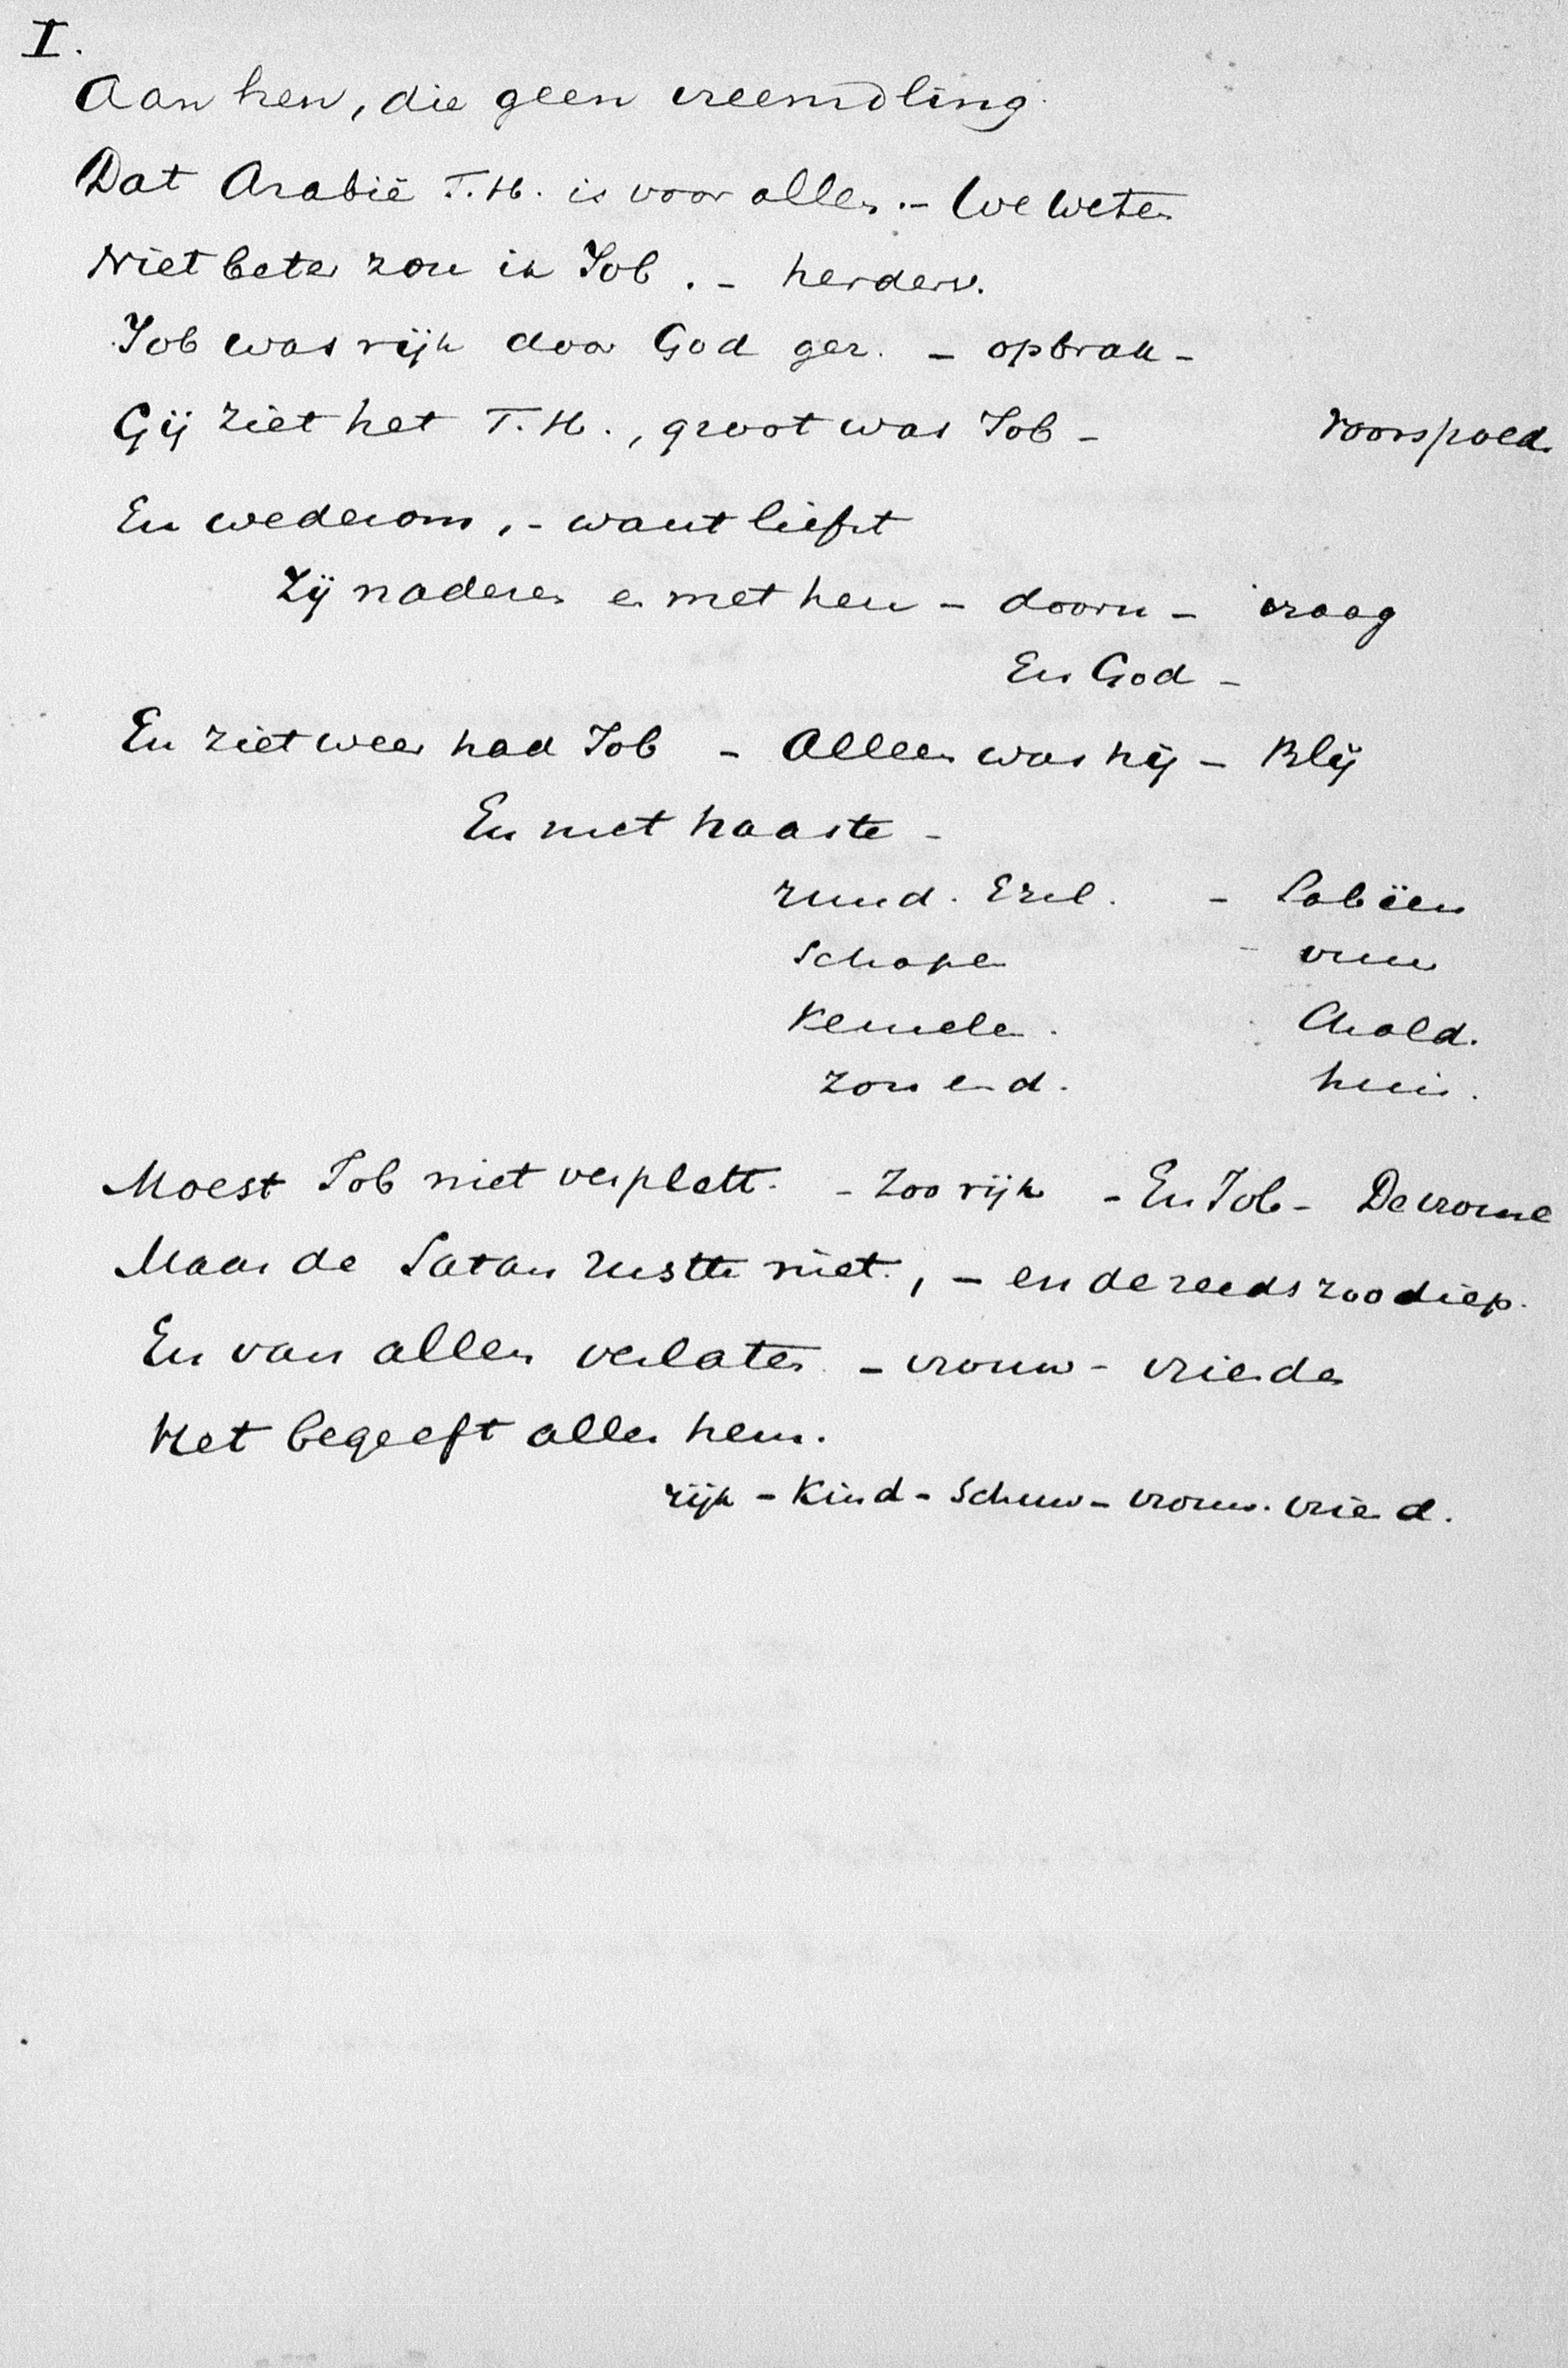 I.
Aan hen, die geen vreemdling
Dat Arabië T.H. is voor allen. - We weten
Niet beter zou ik Job. - herdersv.
Job was rijk door God gez. - opbrak -
Gij ziet het T.H., groot was Job - Voorspoed
En wederom, - want liefst
Zij naderen en met hen - doorn - vraag
En God -
En ziet weer had Job - Alleen was hij - Blij
En met haaste -
rund. Ezel. - Sabëen
Schapen - vuur
Kemelen. Chald.
zon en d. huis.
Moest Job niet verplett. - Zoo rijk - En Job - De vrome
Maar de Satan rustte niet, - en de reeds zoo diep.
En van allen verlaten - vrouw - vrienden
Het begeeft allen hem.
rijk - Kind - Schuw - vrouw. vriend.